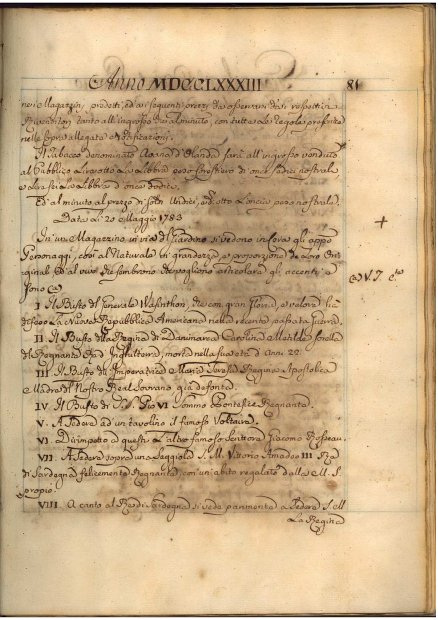 Anno MDCCLXXXIII 81
nei Magazzin, predetti, ed a i seguenti prezzi da osservarsi da i rispettivi
Rivenditori tanto all'ingrosso che al minuto, con tutte le Regole prescritte
nelle sopra allegate Notificazioni.
Il Tabacco denominato Avana d'Olanda sarà all'ingrosso venduto
al Pubblico Lire otto La Libbra peso forestiero di once sedici nostrale
e Lire sei La Libbra d'once dodici,
Ed al minuto al prezzo di soldi Undici, e otto L'oncia peso nostrale.
Data Li 20 Maggio 1783
In un Magazzino in via del Giardino si vedono in Cera gli appresso
Personaggi, così al Naturale in grandezza, e proporzione de Loro Ori-
ginali Ed al vivo che sembrano che vogliano articolare gli accenti, e
sono (a)
(a) V. I. C.to
I Il Busto del Generale Wasinthon, che con gran Gloria, e valore ha
difeso La Nuova Repubblica Americana nella recente passata Guerra.
II. Il Busto della Regina di Danimarca Carolina Matilde sorella
del Regnante Rè d'Inghilterra, morta nella sua età d'Anni 22.
III Il Busto dell'Imperatrice Maria Teresia Regina Apostolica
Madre del Nostro Real Sovrano già defonta.
IV. Il Busto di S.S. Pio VI Sommo Pontefice Regnante.
V. A sedere ad un tavolino il famoso Voltaire.
VI. Dirimpetto a questi L'altro famoso Scrittore Giacomo Rosseau.
VII. A sedere sopra una seggiola S.M. Vittorio Amadeo III Rè
di Sardegna felicemente Regnante, con un abito regalato dalla M. S.
propio.
VIII. A canto al Rè di Sardegna si vede parimente a sedere S.M
La Regina